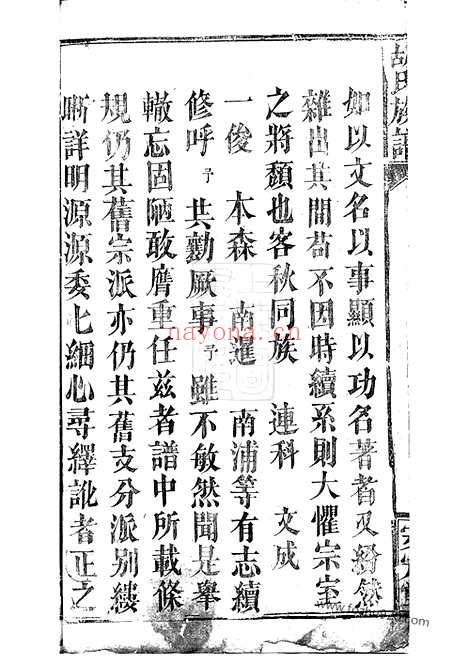 胡氏族譜
如以文名以事顯以功名著者又紛然
雜出其間苟不因時續系則大懼宗室
之將頹也客秋同族 連科 文成
一俊 本森 南暹 南浦等有志續
修呼予共勷厥事予雖不敏然聞是舉
輙忘固陋敢膺重任兹者譜中所載條
規仍其舊宗派亦仍其舊支分派別縷
晰詳明源源委七細心尋繹訛者正之
nayona.cn